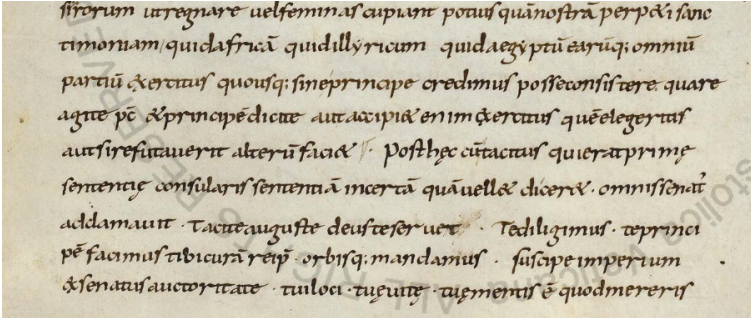 strorum ut regnare vel feminas cupiant potius quā nostrā perp&i sanc
timoniam, quid africā quid illyricum quid aegyptū earūq; omniū
partiū exercitus quousq; sine principe credimus posse consistere. quare
agite pc̄ & principē dicite aut accipi& enim exercitus quē elegeritis
aut si refutaverit alterū faci& · Post hęc cū tacitus qui erat primę
sententię consularis sententiā incertā quā vell& dicer& · omnis senat᷒
adclamavit · Tacite auguste deus te servet · Te diligimus · te princi
pē facimus tibi curā reip̄ · orbisq; mandamus · suscipe imperium
& senatus auctoritate · tui loci · tuę vitę · tuę mentis ē quod mereris